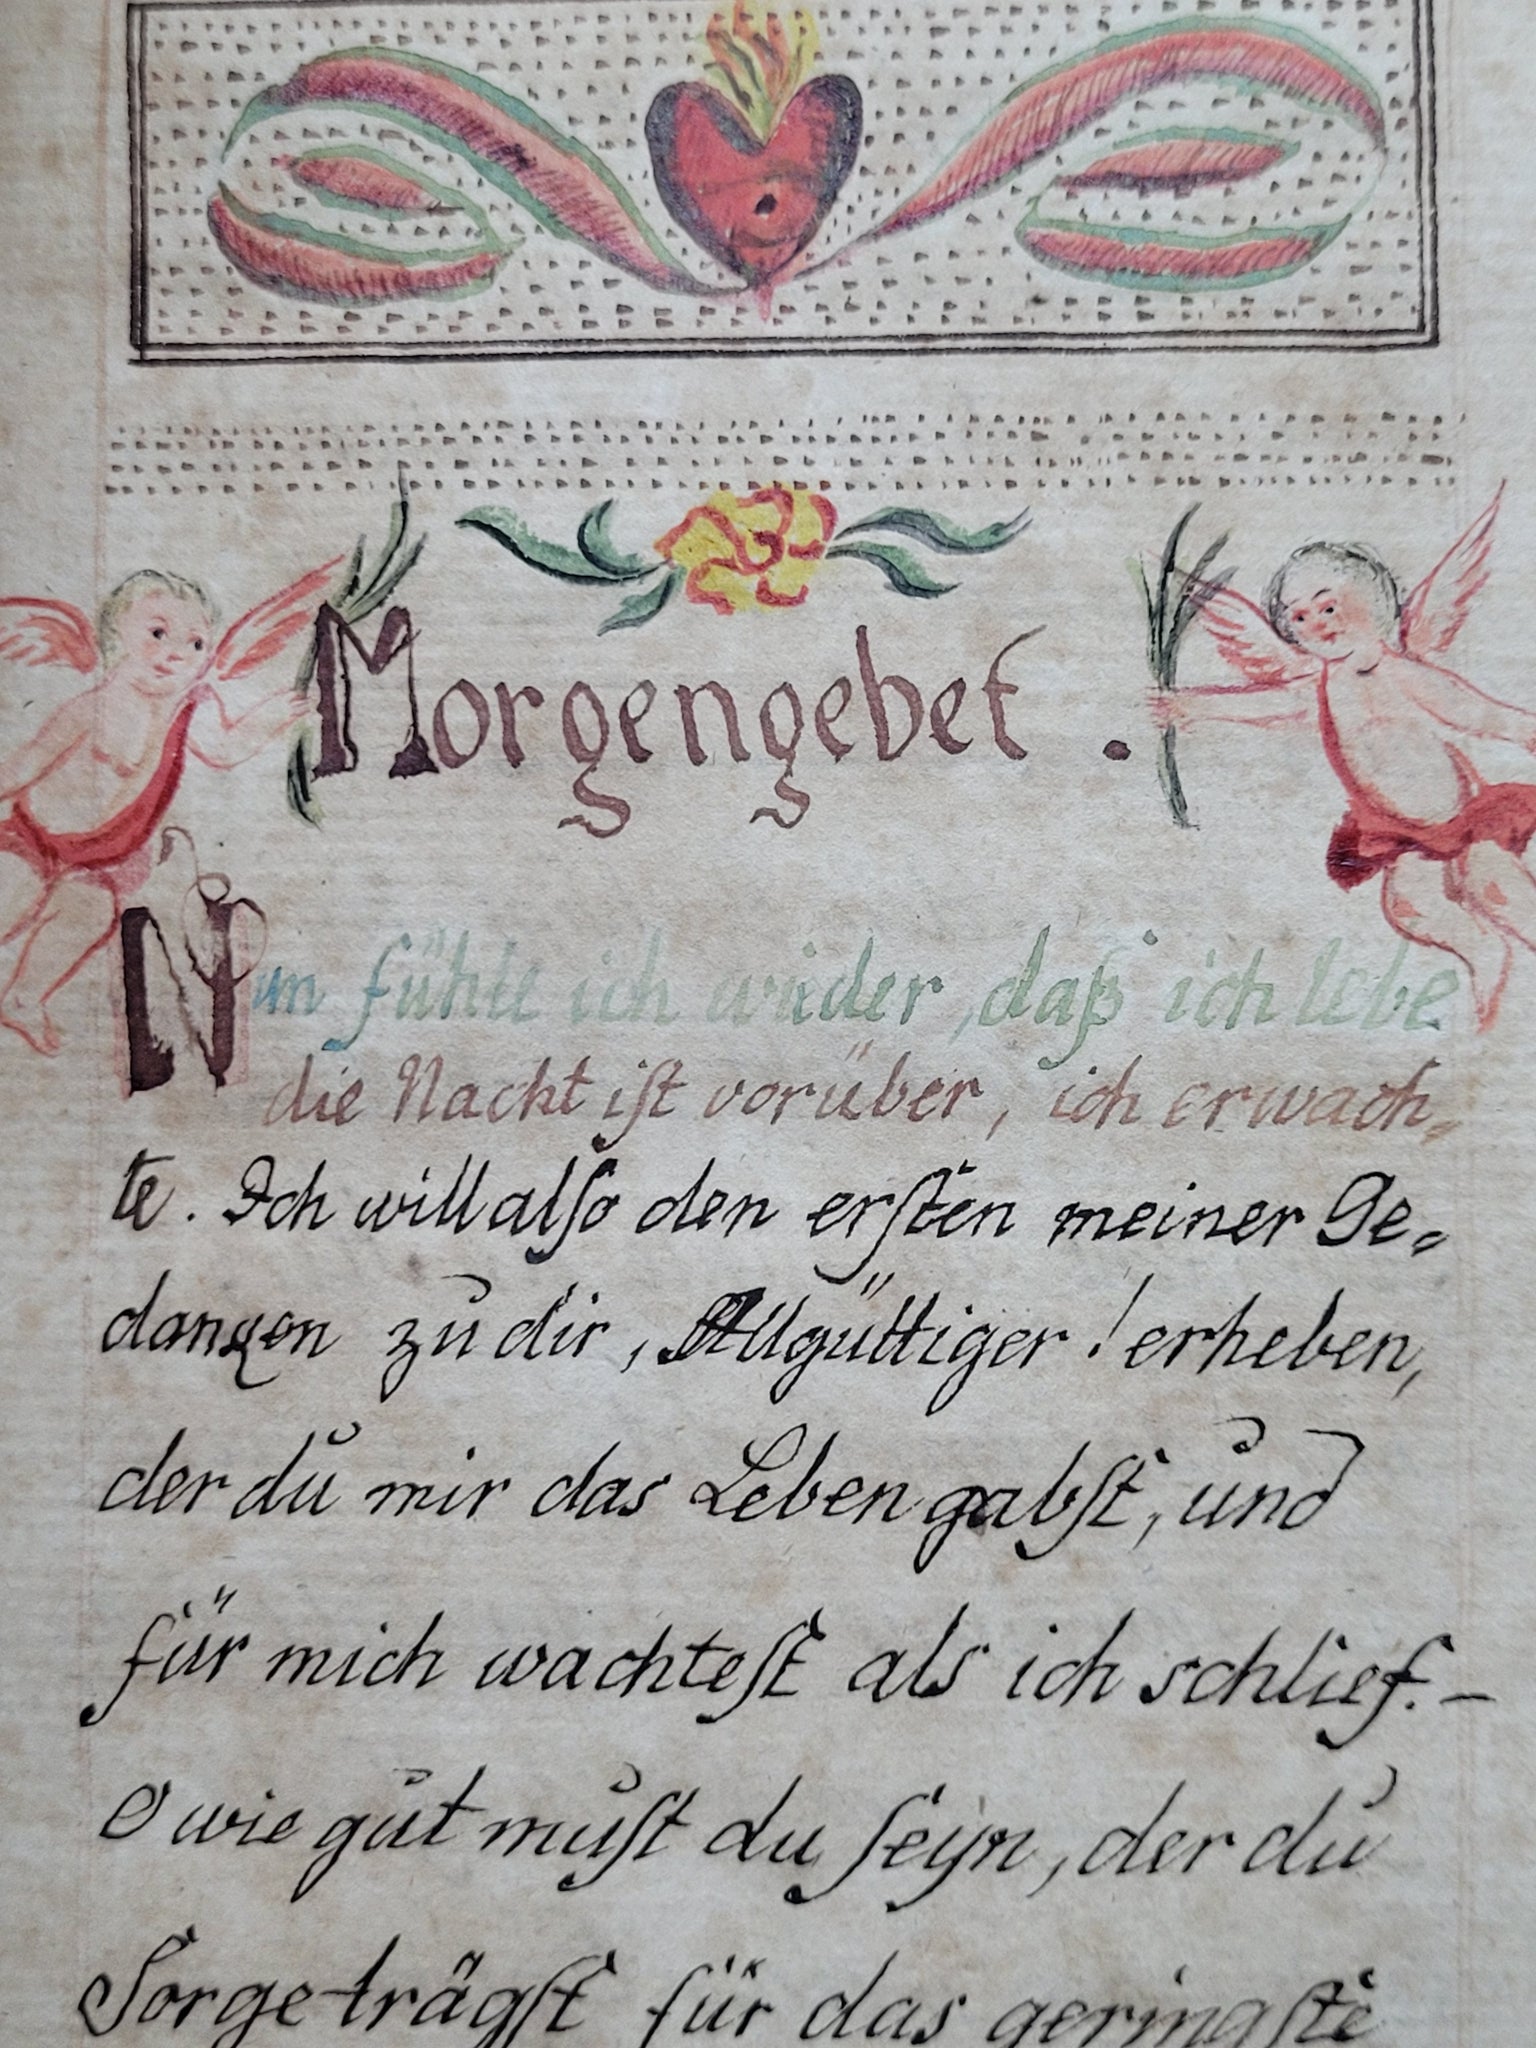 Morgengebet.
Nun fühle ich wieder, daß ich lebe
die Nacht iſt vorüber, ich erwach=
te. Ich will alſo den erſten meiner Ge=
danken zu dir, Allgüttiger! erheben,
der du mir das Leben gabſt, und
für mich wachteſt als ich schlief. –
O wie gut muſt du ſeyn, der du
Sorge trägſt für das geringſte